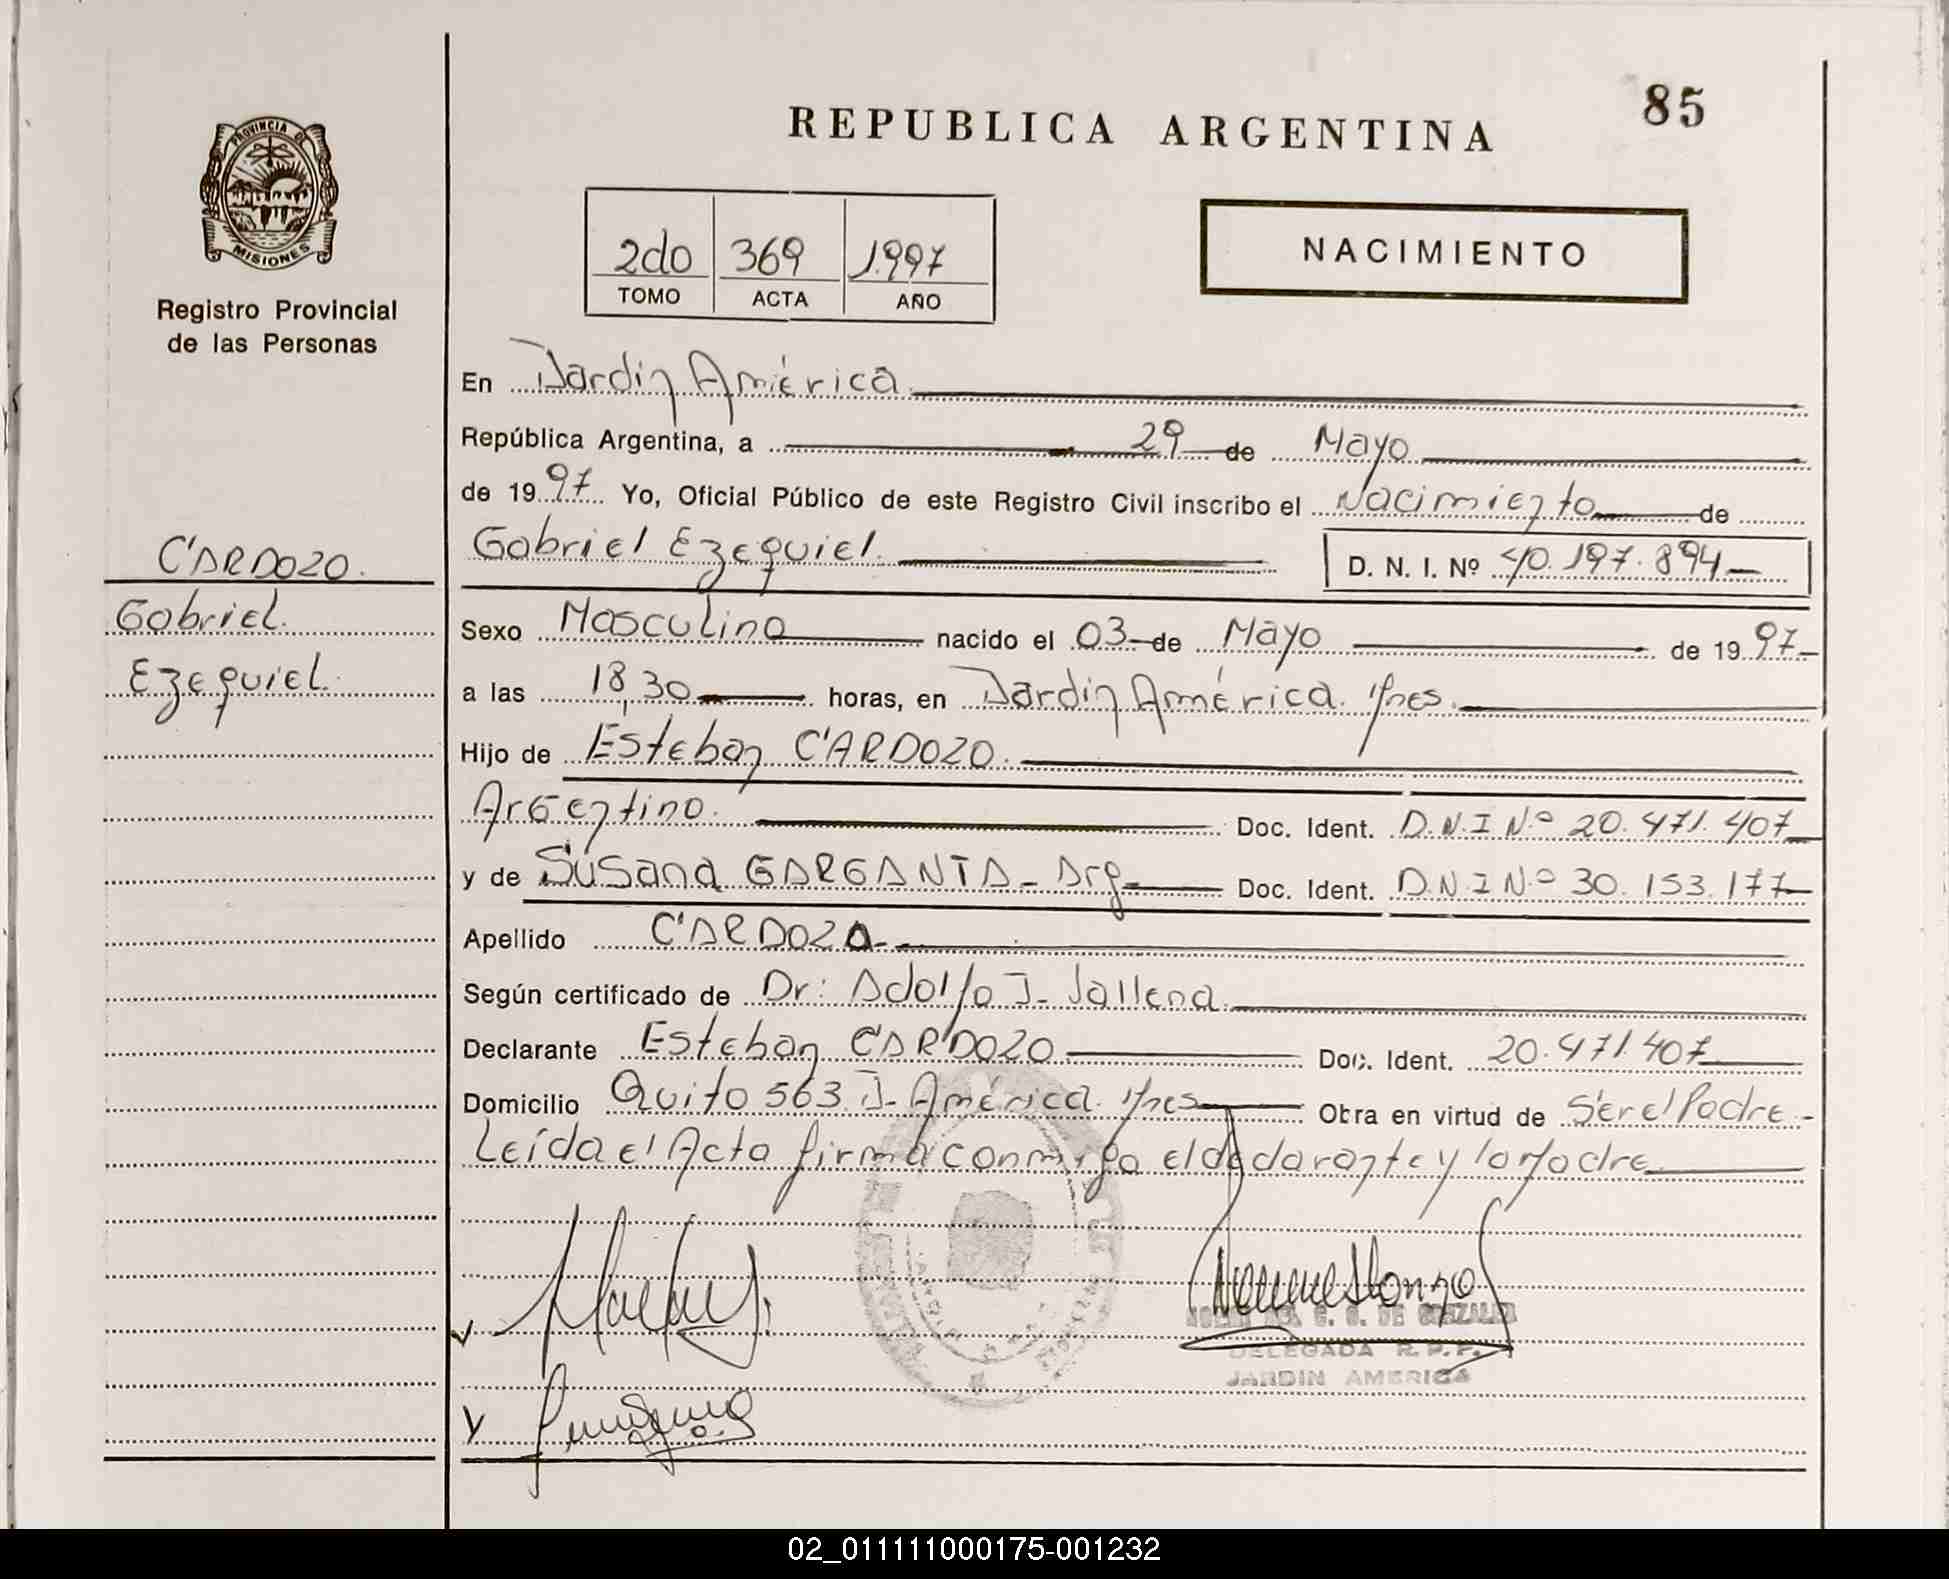 85
REPUBLICA ARGENTINA
PROVINCIA DE
MISIONES
Registro Provincial
de las Personas
2do 369 1.997
TOMO ACTA AÑO
NACIMIENTO
En Jardin América
República Argentina, a 29 de Mayo
de 1997 Yo, Oficial Público de este Registro Civil inscribo el Nacimiento de
Gabriel Ezequiel. D. N. I. Nº 40.197.894
CARDOZO.
Gabriel.
Ezequiel.
Sexo Masculino nacido el 03 de Mayo de 1997
a las 18,30 horas, en Jardin América. Mnes.
Hijo de Esteban CARDOZO.
Argentino. Doc. Ident. D.N.I Nº 20.471.407
y de Susana GARGANTA - Arg Doc. Ident. D.N.I Nº 30.153.177
Apellido CARDOZO
Según certificado de Dr: Adolfo J. Jallena.
Declarante Esteban CARDOZO Doc. Ident. 20.471.407
Domicilio Quito 563. J. América. Mnes Obra en virtud de Ser el Padre.-
Leída el Acta firma conmigo el declarante y la Madre
DE GONZALEZ
DELEGADA R.P.P.
JARDIN AMERICA
02_011111000175-001232